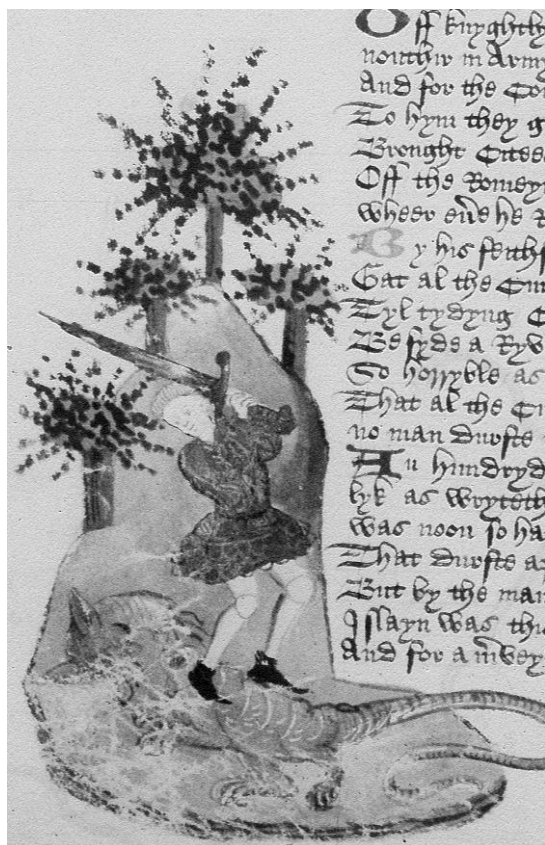 Off knyghtly
nouthir in Army
And for the Co
To hym they g
Brought Citees
Off the Romeyn
wheer eue he R
By his feithf
Gat al the Cun
Tyl tydyng C
Besyde a Ryv
So horryble as
That al the Cu
no man durste
An hundryd
lyk as wryteth
was noon so ha
That durste a
But by the man
Islayn was this
And for a mvey